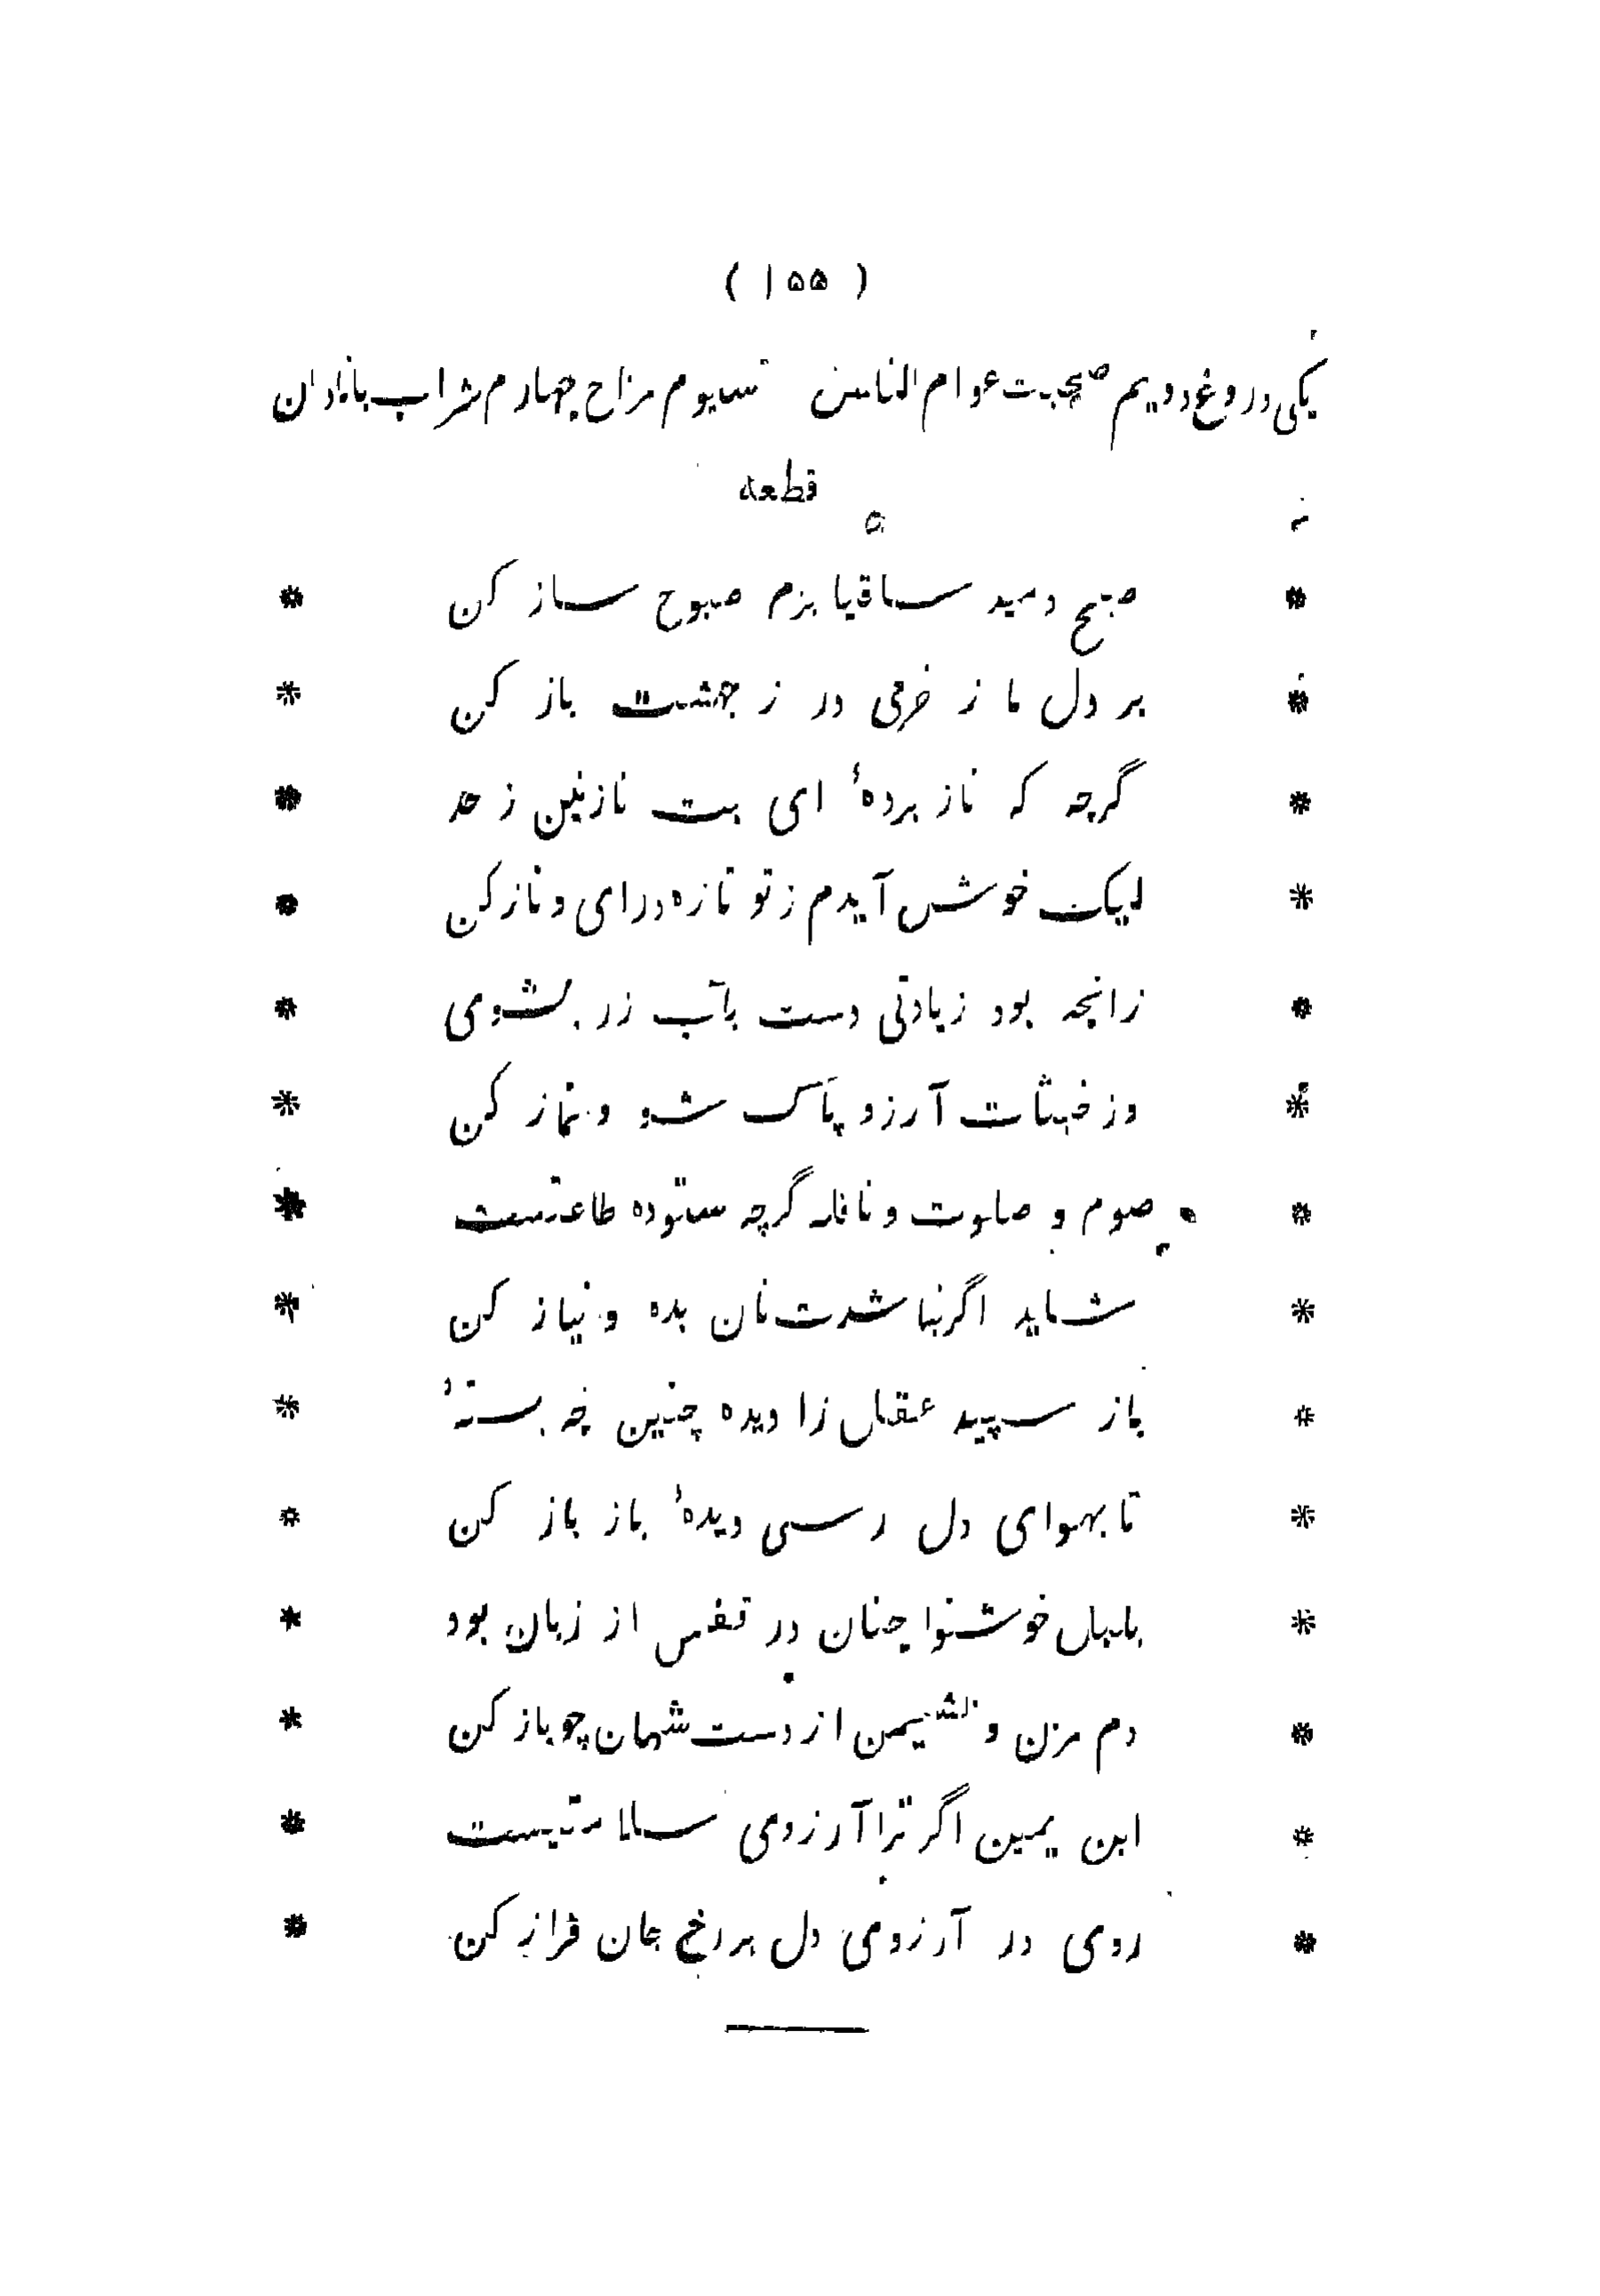 ( ۱۵۵ )
یکی دروغ دویم صحبت عوام الناس سیوم مزاح چهارم شراب بانادان
قطعه
* صبح دمید ساقیا بزم صبوح ساز کن *
* بر دل ما ز خرمی در ز بهشت باز کن *
* گرچه که ناز بردهٔ ای بت نازنین ز حد *
* لیک خوش آیدم ز تو تازه درای و ناز کن *
* زانچه بود زیادتی دست بآب زر بشوی *
* وز خبثات آرزو پاک شو و نماز کن *
* صوم و صلوت و نافله گرچه ستوده طاعتست *
* شاید اگر نباشدت نان بده و نیاز کن *
* باز سپید عقل را دیده چنین چه بستهٔ *
* تا بهوای دل رسی دیدهٔ باز باز کن *
* بلبل خوشنوا چنان در قفس از زبان بود *
* دم مزن و نشیمن از دست شهان چو باز کن *
* ابن یمین اگر ترا آرزوی سلامتیست *
* روی در آرزوی دل بر رخ جان فراز کن *